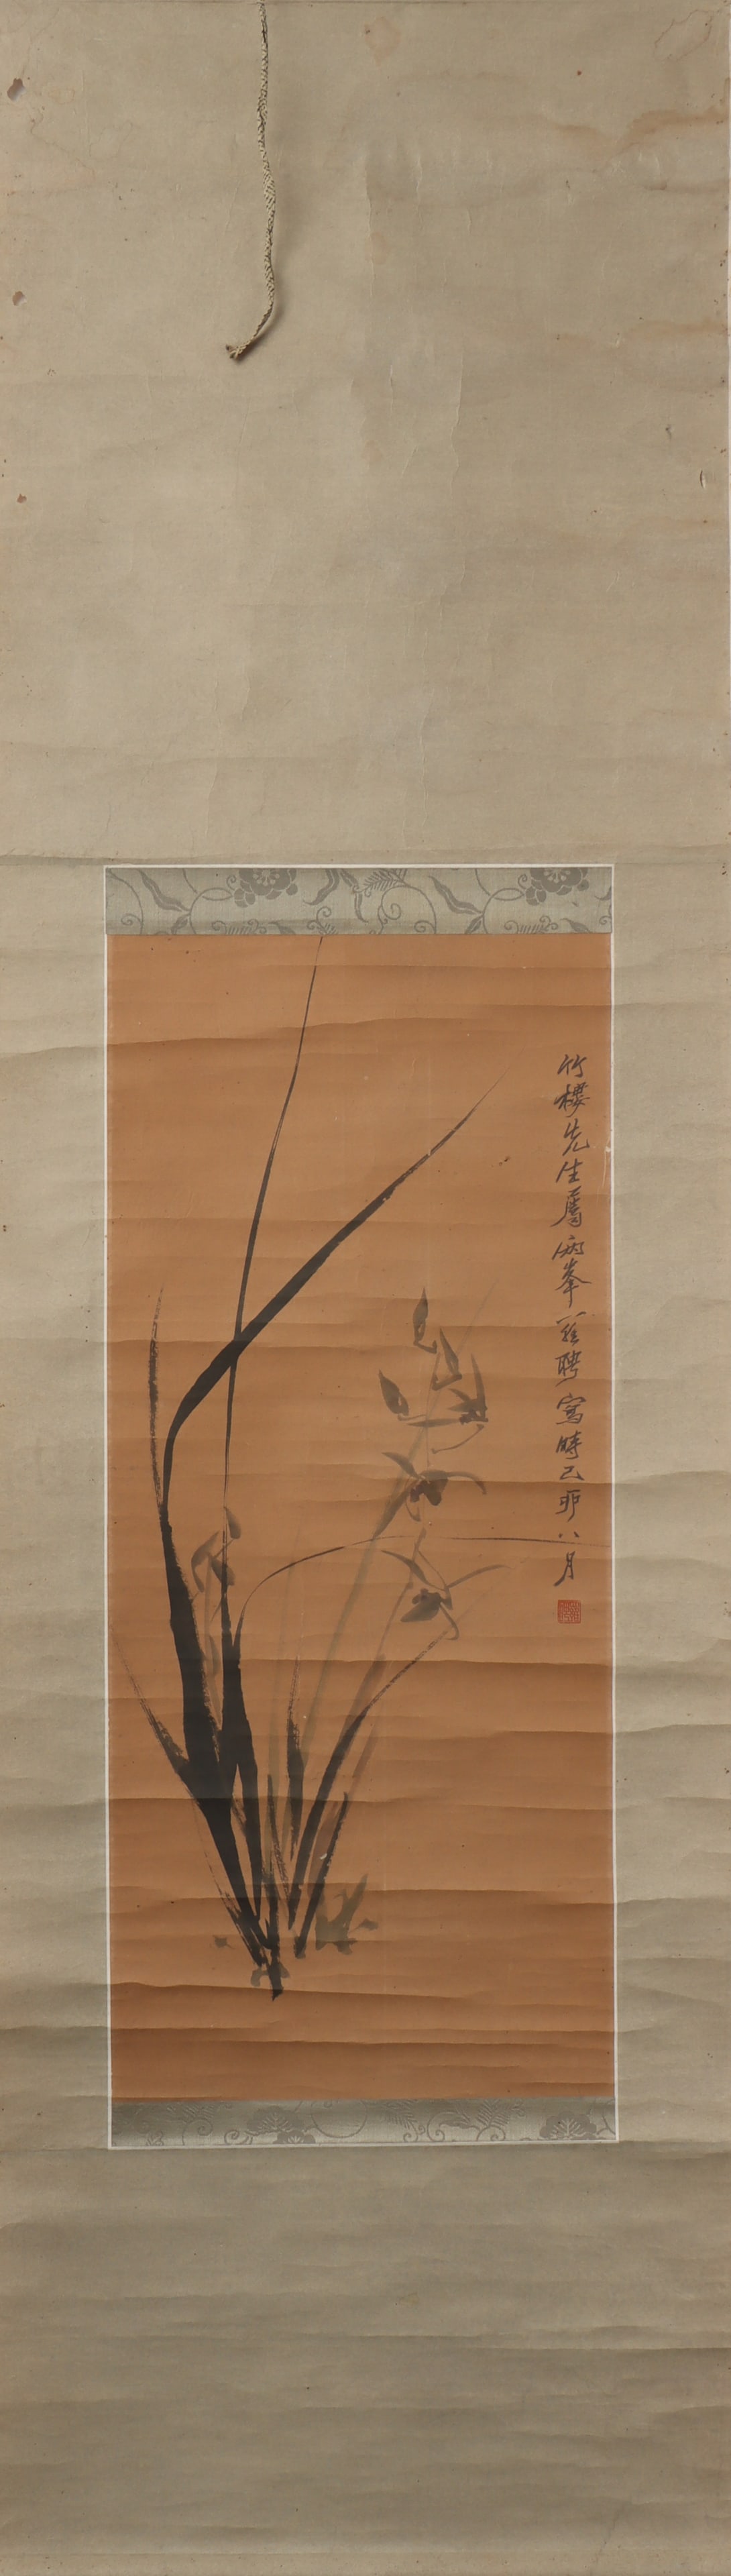 竹樓先生屬兩峯羅聘寫時己卯八月